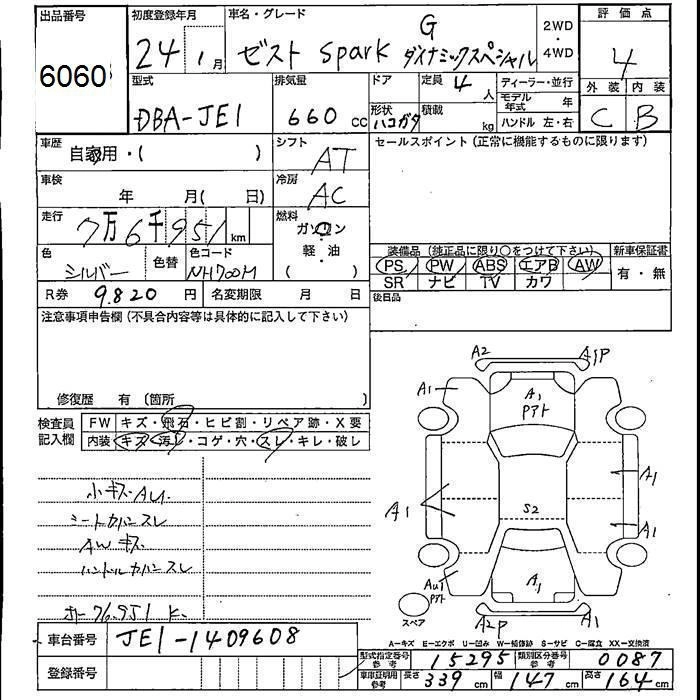 出品番号 初度登録年月 車名・グレード 2WD・4WD 評価点
6060 24 1月 ゼスト spark G ダイナミックスペシャル 4
型式 排気量 ドア 定員 4人 ディーラー・並行 外装 内装
DBA-JE1 660 cc 形状 ハコガタ 積載 kg モデル年式 年 C B
ハンドル 左・右
車歴 自家用・( ) シフト AT セールスポイント (正常に機能するものに限ります)
車検 年 月( 日) 冷房 AC
走行 7万6千951 km 燃料 ガソリン
軽・油
( )
色 シルバー 色替 色コード NH700M
装備品 (純正品に限り○をつけて下さい) 新車保証書
PS PW ABS エアB AW 有・無
SR ナビ TV カワ
R券 9.820 円 名変期限 月 日 後日品
注意事項申告欄 (不具合内容等は具体的に記入して下さい)
修復歴 有 (箇所 )
検査員記入欄 FW キズ・飛石・ヒビ割・リペア跡・X要
内装 キズ・汚れ・コゲ・穴・スレ・キレ・破レ
小キズAU.
シートカバースレ
AWキズ
ハンドルカバースレ
76.951 K.
A2 A1P
A1 A1 Pアト
A1 A1
S2 A1
AU1 Pアト A1
スペア A2P A1
A-キズ E-エクボ U-凹み W-補修跡 S-サビ C-腐食 XX-交換済
車台番号 JE1-1409608
型式指定番号 参考 15295 類別区分番号 参考 0087
登録番号
車庫証明用 参考 長さ 339 cm 幅 147 cm 高さ 164 cm